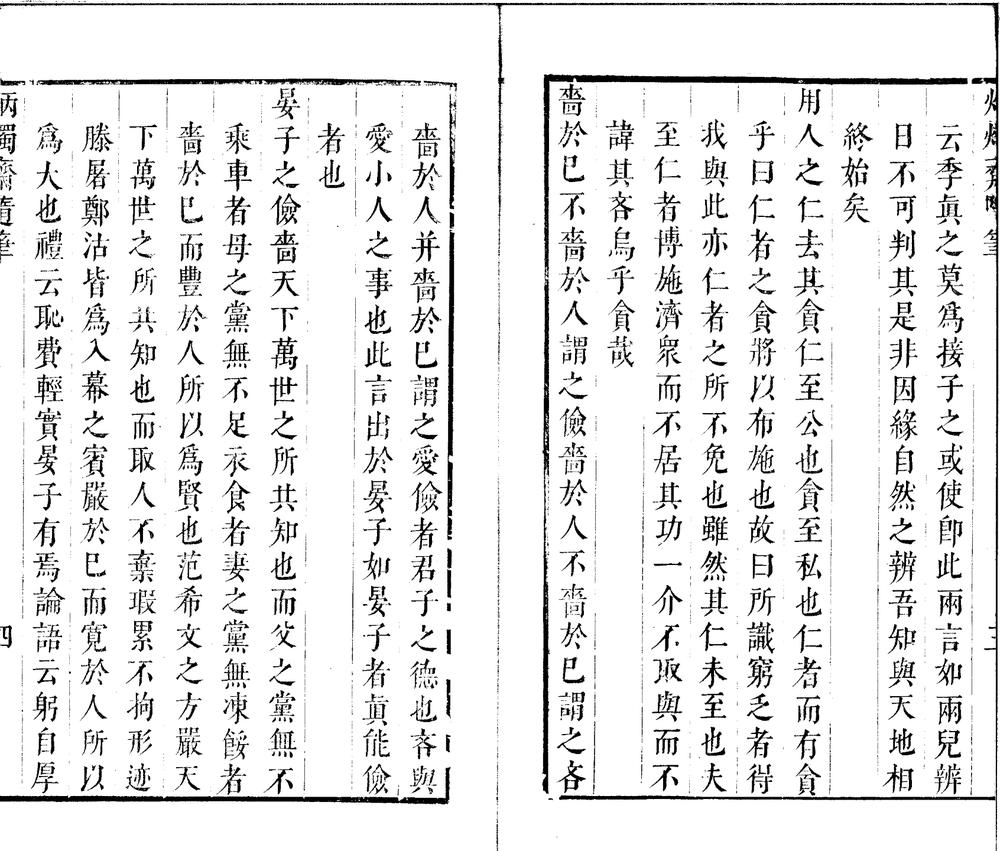 云季眞之莫爲接子之或使卽此兩言如兩兒辨
日不可判其是非因緣自然之辨吾知與天地相
終始矣
用人之仁去其貪仁至公也貪至私也仁者而有貪
乎曰仁者之貪將以布施也故曰所識窮乏者得
我與此亦仁者之所不免也雖然其仁未至也夫
至仁者博施濟衆而不居其功一介不取與而不
諱其吝烏乎貪哉
嗇於已不嗇於人謂之儉嗇於人不嗇於已謂之吝
嗇於人并嗇於已謂之愛儉者君子之德也吝與
愛小人之事也此言出於晏子如晏子者眞能儉
者也
晏子之儉嗇天下萬世之所共知也而父之黨無不
乘車者母之黨無不足衣食者妻之黨無凍餒者
嗇於已而豐於人所以爲賢也范希文之方嚴天
下萬世之所共知也而取人不棄瑕累不拘形迹
滕屠鄭沽皆爲入幕之賓嚴於已而寬於人所以
爲大也禮云恥費輕實晏子有焉論語云躬自厚
炳燭齋隨筆
四